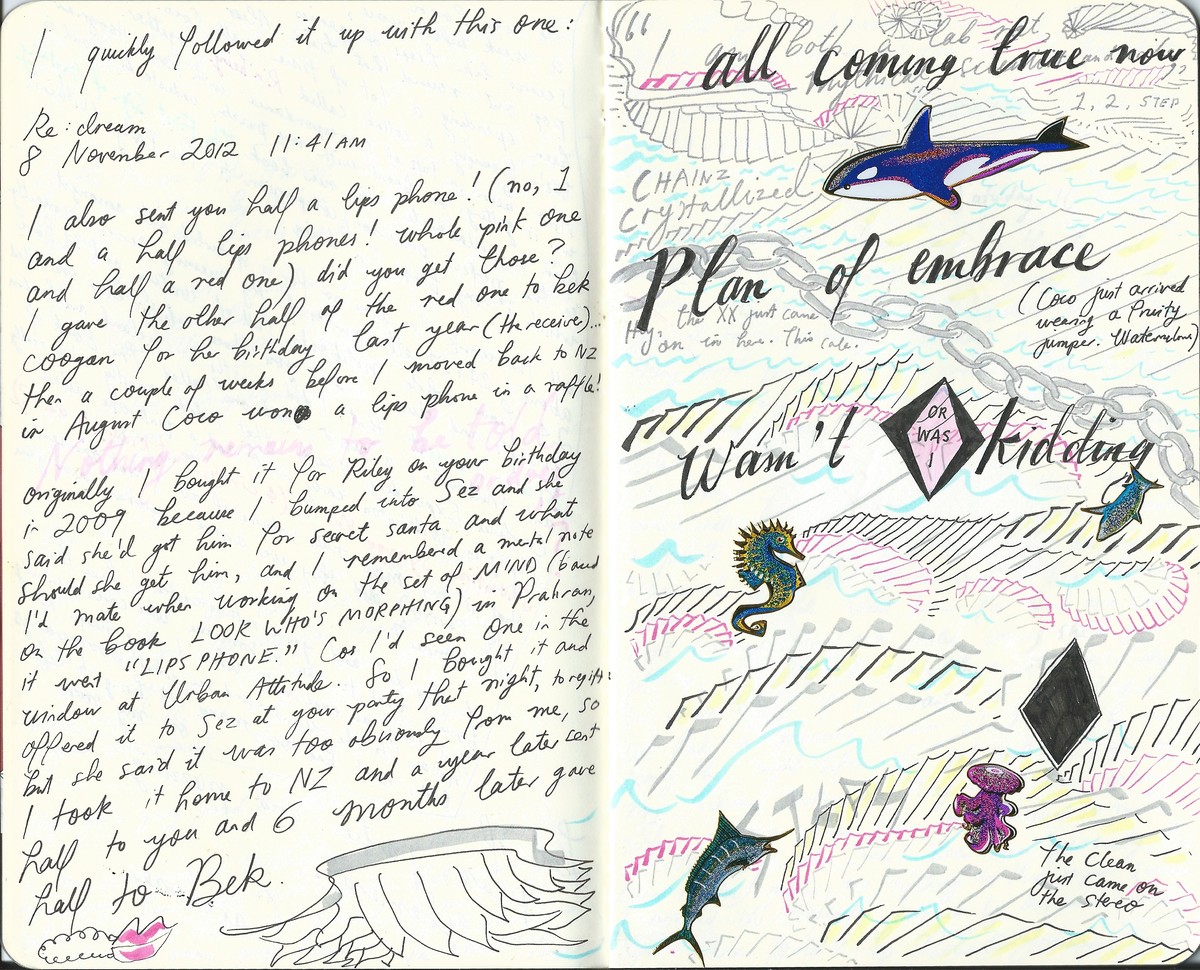 I quickly followed it up with this one:
Re: dream
8 November 2012 11:41 AM
I also sent you half a lips phone! (no, 1
and a half lips phones! whole pink one
and half a red one) did you get those?
I gave the other half of the red one to bek
coogan for her birthday last year (the receive)...
then a couple of weeks before I moved back to NZ
in August Coco won a lips phone in a raffle!
Nothing remains to be told
originally I bought it for Riley on your birthday
in 2009 because I bumped into Sez and she
said she'd got him for secret santa and what
should she get him, and I remembered a mental note
I'd mate when working on the set of MIND (based
on the book LOOK WHO'S MORPHING) in Prahran,
it went "LIPS PHONE." Cos I'd seen one in the
window at Urban Attitude. So I bought it and
offered it to Sez at your party that night, to regift
but she said it was too obviously from me, so
I took it home to NZ and a year later sent
half to you and 6 months later gave
half to Bek.
“ I am both a lab rat
all coming true now
1, 2, STEP
CHAINZ
Crystallized
Plan of embrace
(Coco just arrived
wearing a fruity
jumper. Watermelons)
Hey, the XX just came
on in here. This cafe.
Wasn't OR WAS I kidding
The Clean
just came on
the stereo